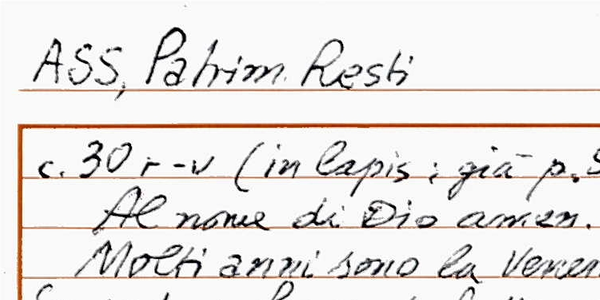 ASS, Patrim. Resti
c. 30 r-v (in lapis: già p.
Al nome di Dio amen.
Molti anni sono la